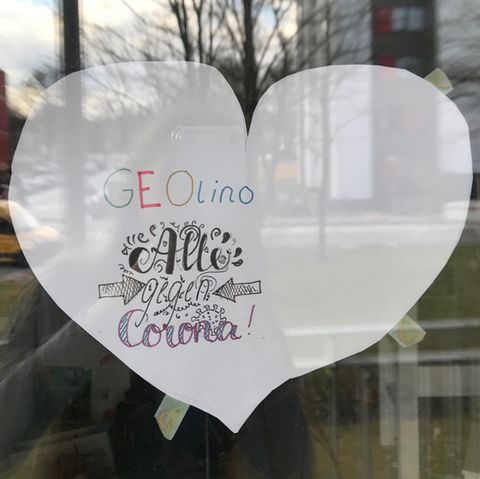 GEOlino
Alle
gegen
Corona!